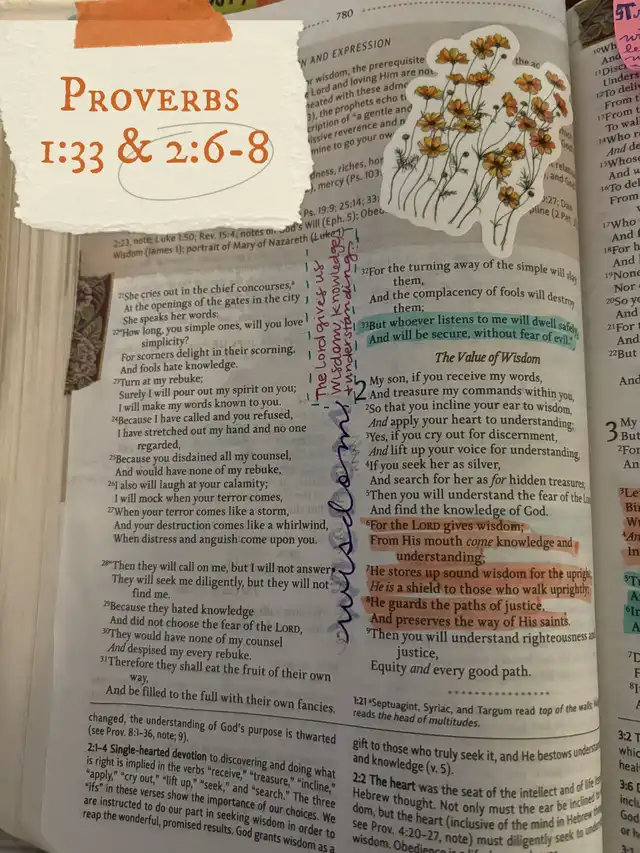 780
Proverbs
1:33 & 2:6-8
N AND EXPRESSION
r wisdom, the prerequisite
Lord and loving Him are not
eated with these adm
), the prophets echo t
ription of "a gentle and
issive reverence and
mine to your ow
dness, riches, ho
mercy (Ps. 103
Ps. 19:9; 25:14; 33:
2:23, note; Luke 1:50; Rev. 15:4; notes on God's Will (Eph. 5); Obed
pline (2 Pet.
Wisdom (James 1); portrait of Mary of Nazareth (Luke
21She cries out in the chief concourses,a
At the openings of the gates in the city
She speaks her words:
22"How long, you simple ones, will you love
simplicity?
For scorners delight in their scorning,
And fools hate knowledge.
23Turn at my rebuke;
Surely I will pour out my spirit on you;
I will make my words known to you.
24Because I have called and you refused,
I have stretched out my hand and no one
regarded,
25Because you disdained all my counsel,
And would have none of my rebuke,
26I also will laugh at your calamity;
I will mock when your terror comes,
27When your terror comes like a storm,
And your destruction comes like a whirlwind,
When distress and anguish come upon you.
28"Then they will call on me, but I will not answer;
They will seek me diligently, but they will not
find me.
29Because they hated knowledge
And did not choose the fear of the LORD,
30They would have none of my counsel
And despised my every rebuke.
31Therefore they shall eat the fruit of their own
way,
And be filled to the full with their own fancies.
The Lord gives us
wisdom, knowledge
+ understanding.
wisdom
32For the turning away of the simple will slay
them,
And the complacency of fools will destroy
them;
33But whoever listens to me will dwell safely,
And will be secure, without fear of evil."
The Value of Wisdom
2 My son, if you receive my words,
And treasure my commands within you,
2So that you incline your ear to wisdom,
And apply your heart to understanding;
3Yes, if you cry out for discernment,
And lift up your voice for understanding,
4If you seek her as silver,
And search for her as for hidden treasures;
5Then you will understand the fear of the LORD,
And find the knowledge of God.
6For the LORD gives wisdom;
From His mouth come knowledge and
understanding;
7He stores up sound wisdom for the upright;
He is a shield to those who walk uprightly;
8He guards the paths of justice,
And preserves the way of His saints.
9Then you will understand righteousness and
justice,
Equity and every good path.
1:21 aSeptuagint, Syriac, and Targum read top of the walls;
reads the head of multitudes.
changed, the understanding of God's purpose is thwarted
(see Prov. 8:1–36, note; 9).
2:1–4 Single-hearted devotion to discovering and doing what
is right is implied in the verbs "receive," "treasure," "incline,"
"apply," "cry out," "lift up," "seek," and "search." The three
"ifs" in these verses show the importance of our choices. We
are instructed to do our part in seeking wisdom in order to
reap the wonderful, promised results. God grants wisdom as a
gift to those who truly seek it, and He bestows underst
and knowledge (v. 5).
2:2 The heart was the seat of the intellect and of life
Hebrew thought. Not only must the ear be inclined to
dom, but the heart (inclusive of the mind in Hebrew
see Prov. 4:20–27, note) must diligently seek to under
wisdom.
3